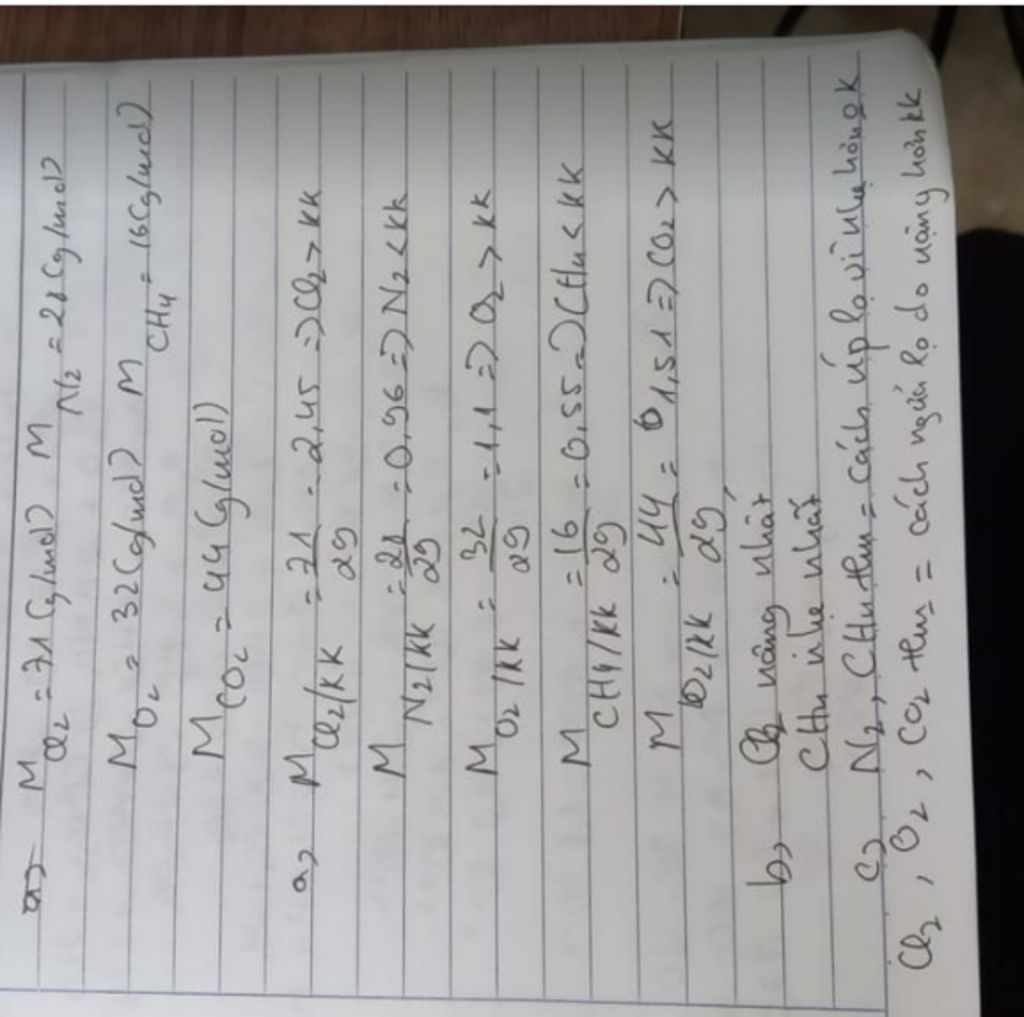 M Cl2 = 71 (g/mol) M N2 = 28 (g/mol)
M O2 = 32 (g/mol) M CH4 = 16 (g/mol)
M CO2 = 44 (g/mol)
a, M Cl2/KK = 71/29 = 2,45 => Cl2 > KK
M N2/KK = 28/29 = 0,96 => N2 < KK
M O2/KK = 32/29 = 1,1 => O2 > KK
M CH4/KK = 16/29 = 0,55 => CH4 < KK
M CO2/KK = 44/29 = 1,51 => CO2 > KK
b, Cl2 nâng nhât
CH4 nhẹ nhất
c, N2, CH4 thu = cách úp lọ vì nhẹ hơn KK
Cl2, O2, CO2 thu = cách ngửa lọ do nặng hơn KK